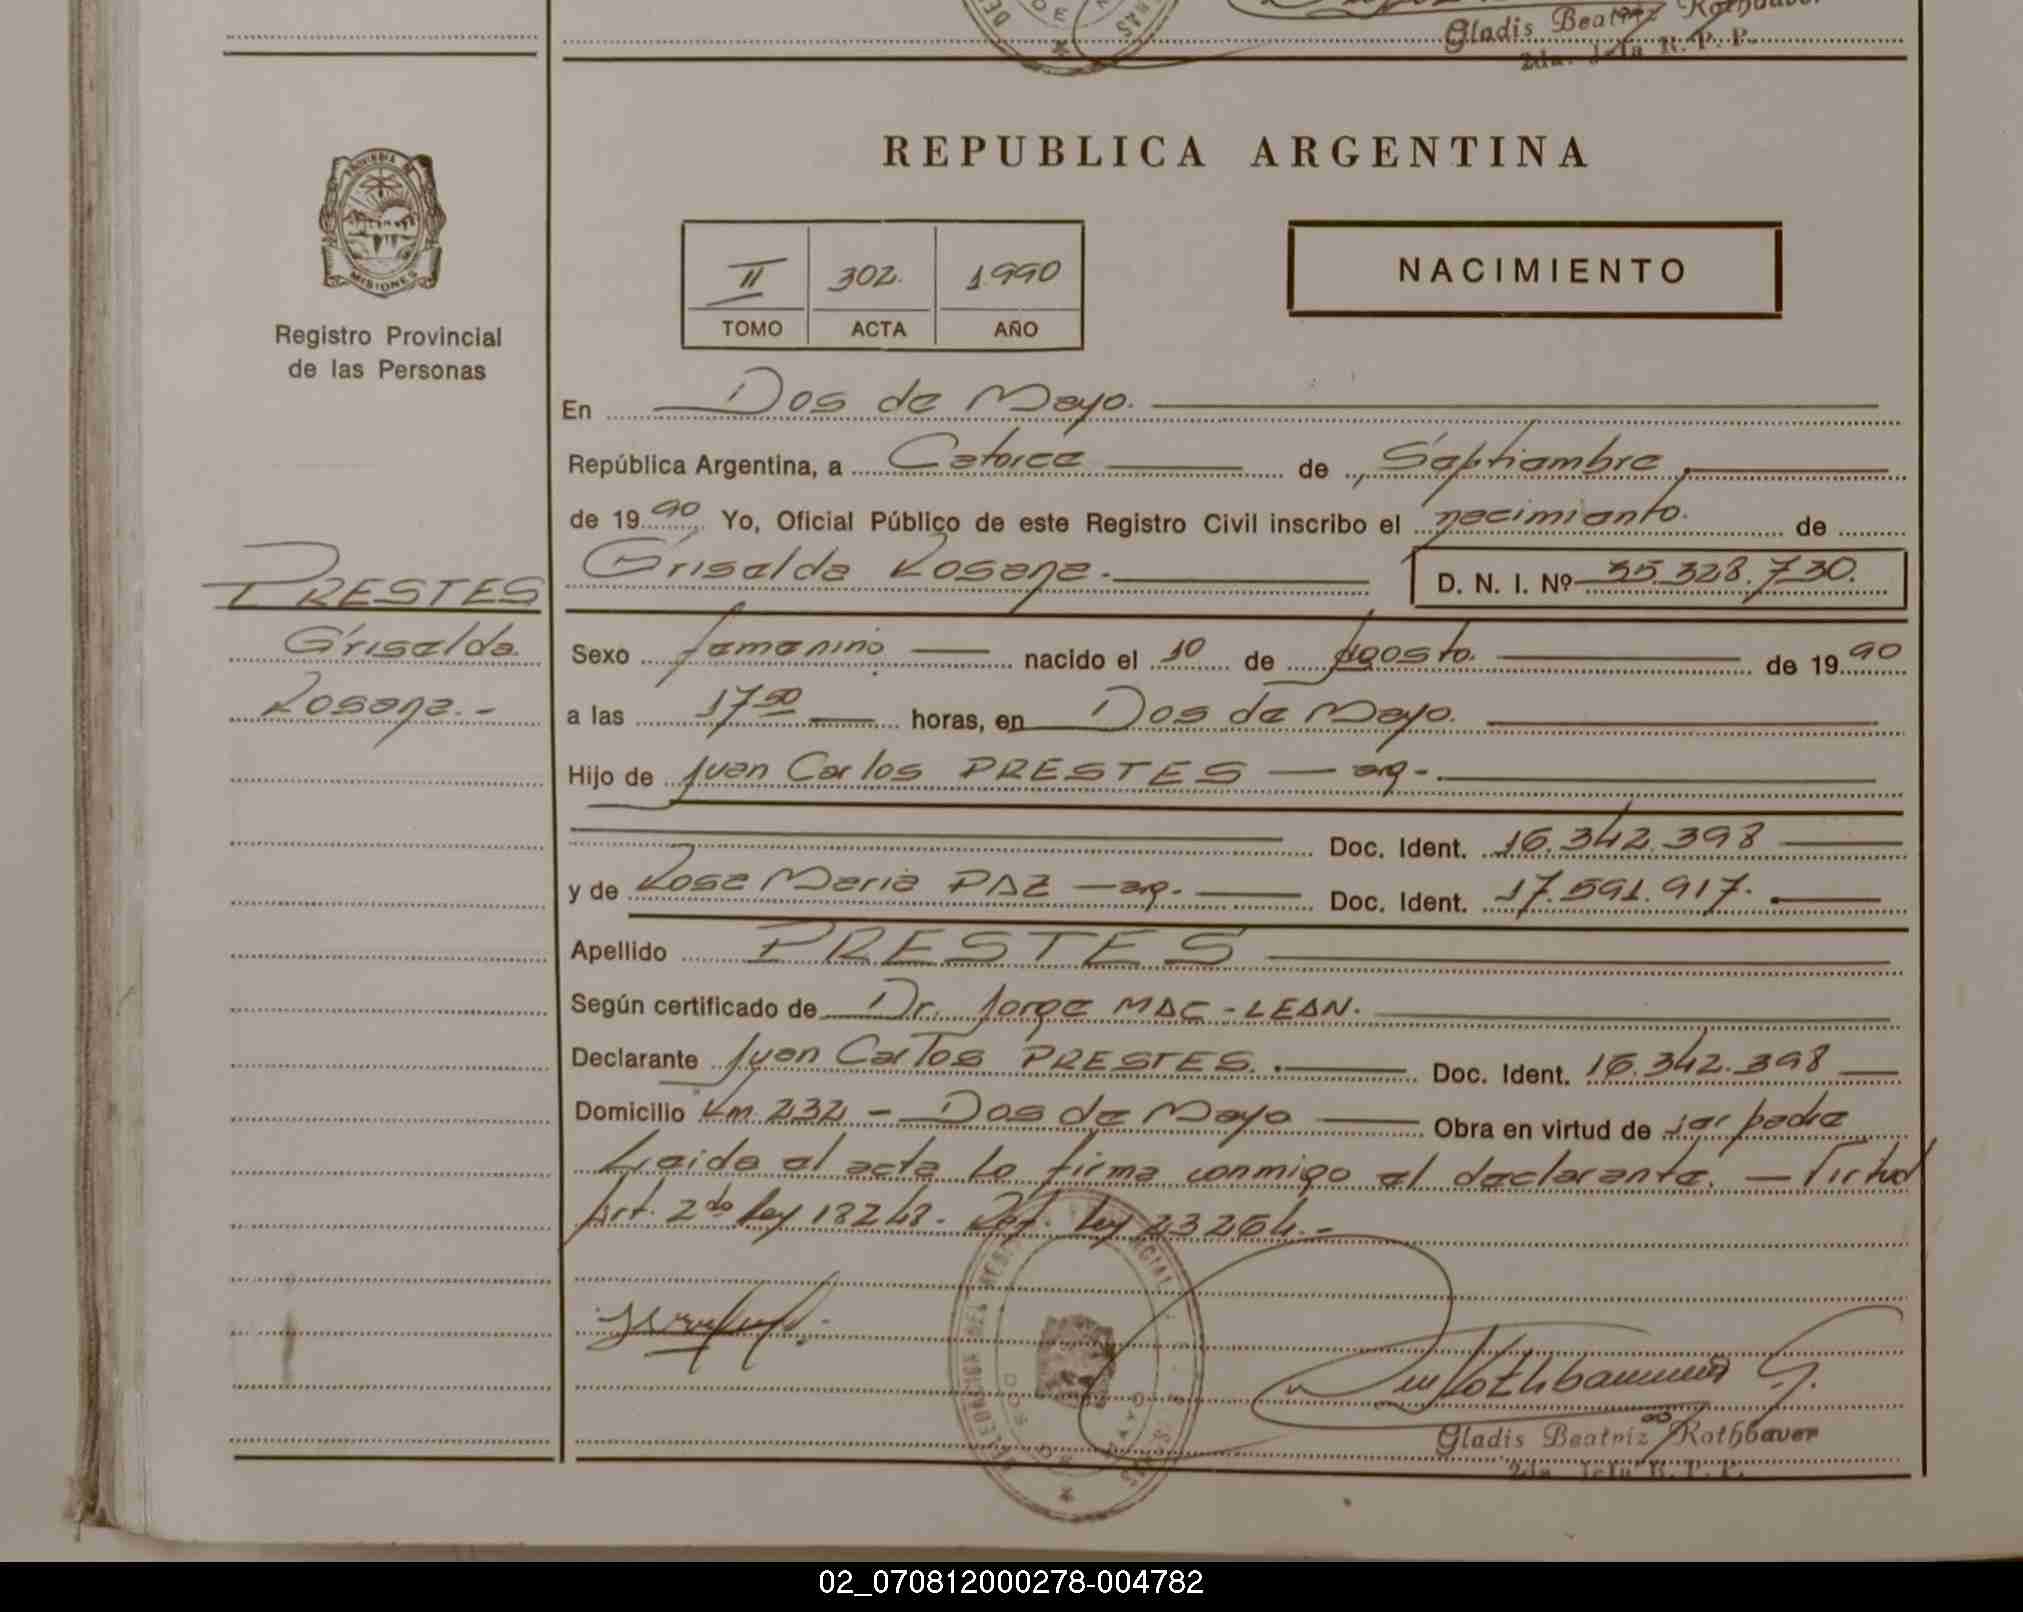 Gladis Beatriz Rothbauer
2da. Jefa R. P. P.
REPUBLICA ARGENTINA
PROVINCIA
MISIONES
Registro Provincial
de las Personas
II 302. 1990
TOMO ACTA AÑO
NACIMIENTO
En Dos de Mayo.
República Argentina, a Catorce de Septiembre
de 1990 Yo, Oficial Público de este Registro Civil inscribo el nacimiento. de
Griselda Rosana. D. N. I. Nº 35.328.730.
PRESTES
Griselda
Rosana.-
Sexo femenino nacido el 10 de Agosto. de 1990
a las 17 50 horas, en Dos de Mayo.
Hijo de Juan Carlos PRESTES — arg-.
Doc. Ident. 16.342.398
y de Rosa Maria PAZ — arg-. Doc. Ident. 17.591.917.
Apellido PRESTES
Según certificado de Dr. Jorge MAC-LEAN.
Declarante Juan Carlos PRESTES. Doc. Ident. 16.342.398
Domicilio Km. 232 - Dos de Mayo Obra en virtud de ser padre
Leida el acta la firma conmigo el declarante. — Virtud
Art. 2do ley 18248. Ref. ley 23264.-
Rothbauer G.
Gladis Beatriz Rothbauer
2da. Jefa R. P. P.
02_070812000278-004782